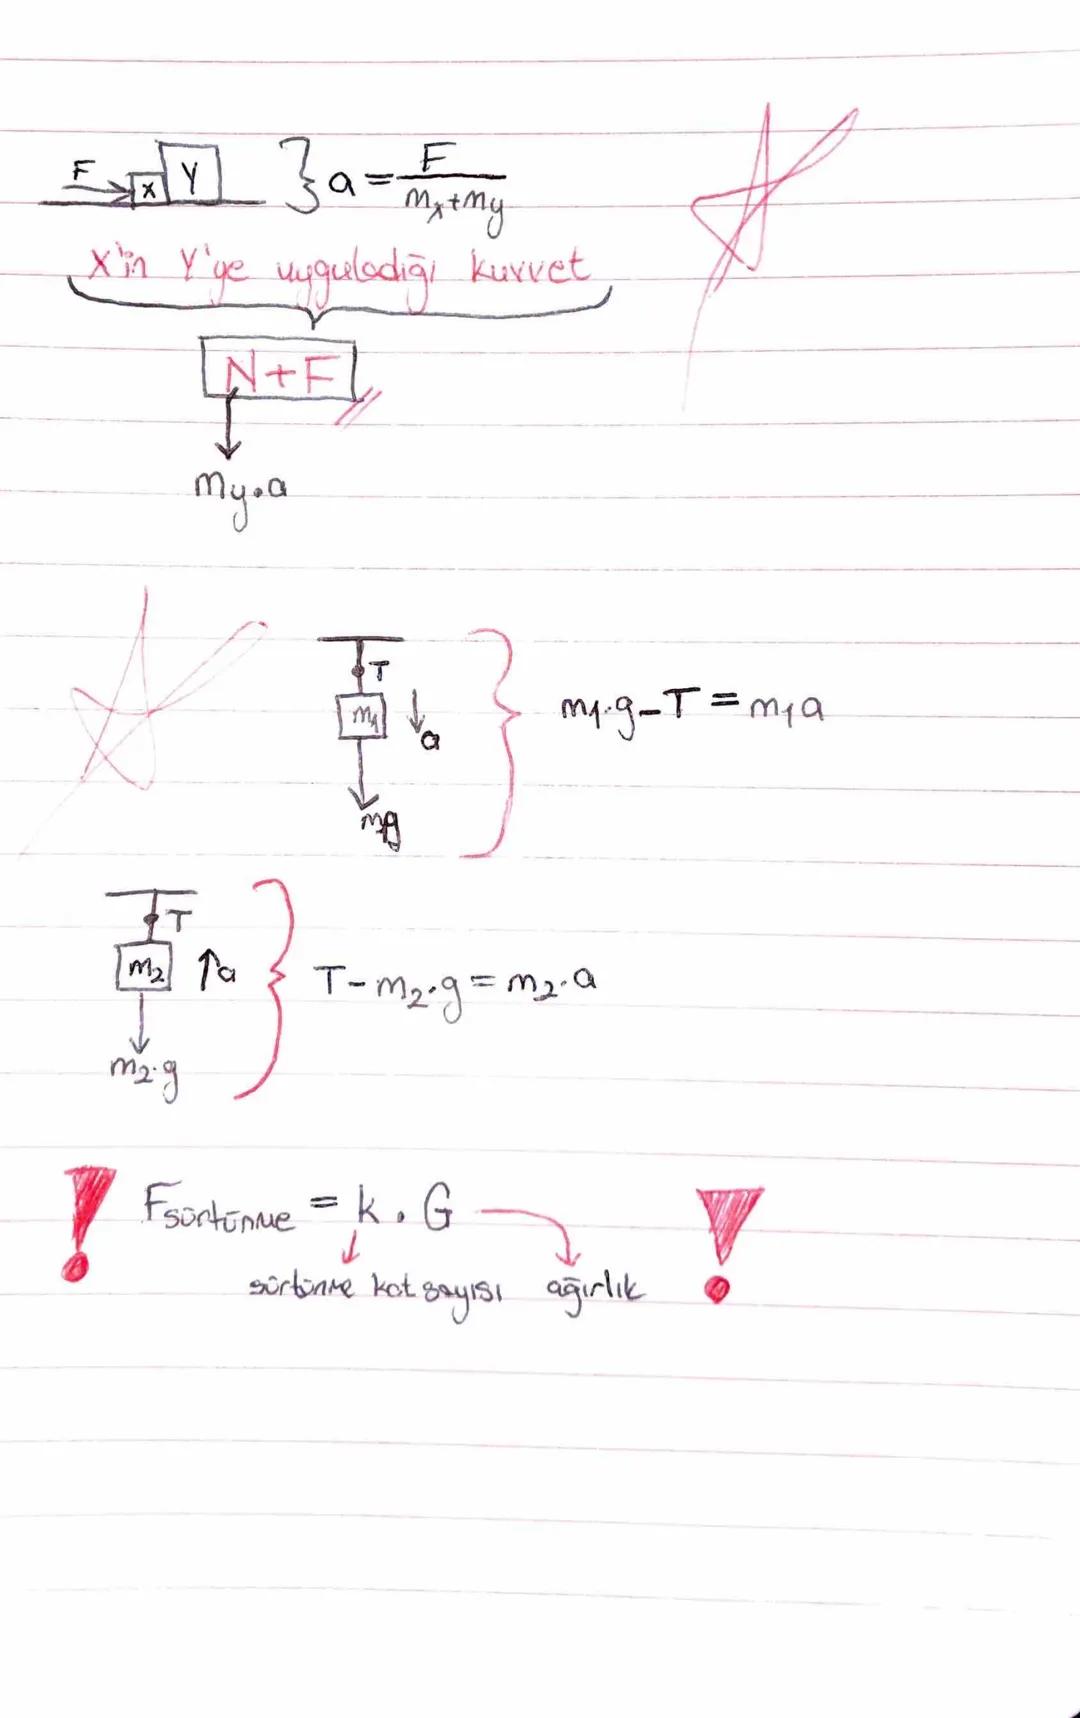 F x Y } a = F / mx+my
X'in Y'ye uyguladığı kuvvet
N+F
my.a
T
m1 ↓a
m1.g-T=m1a
mg
T
m2 ↑a
T-m2.g=m2.a
m2.g
! Fsürtünme = k.G !
sürtünme katsayısı ağırlık